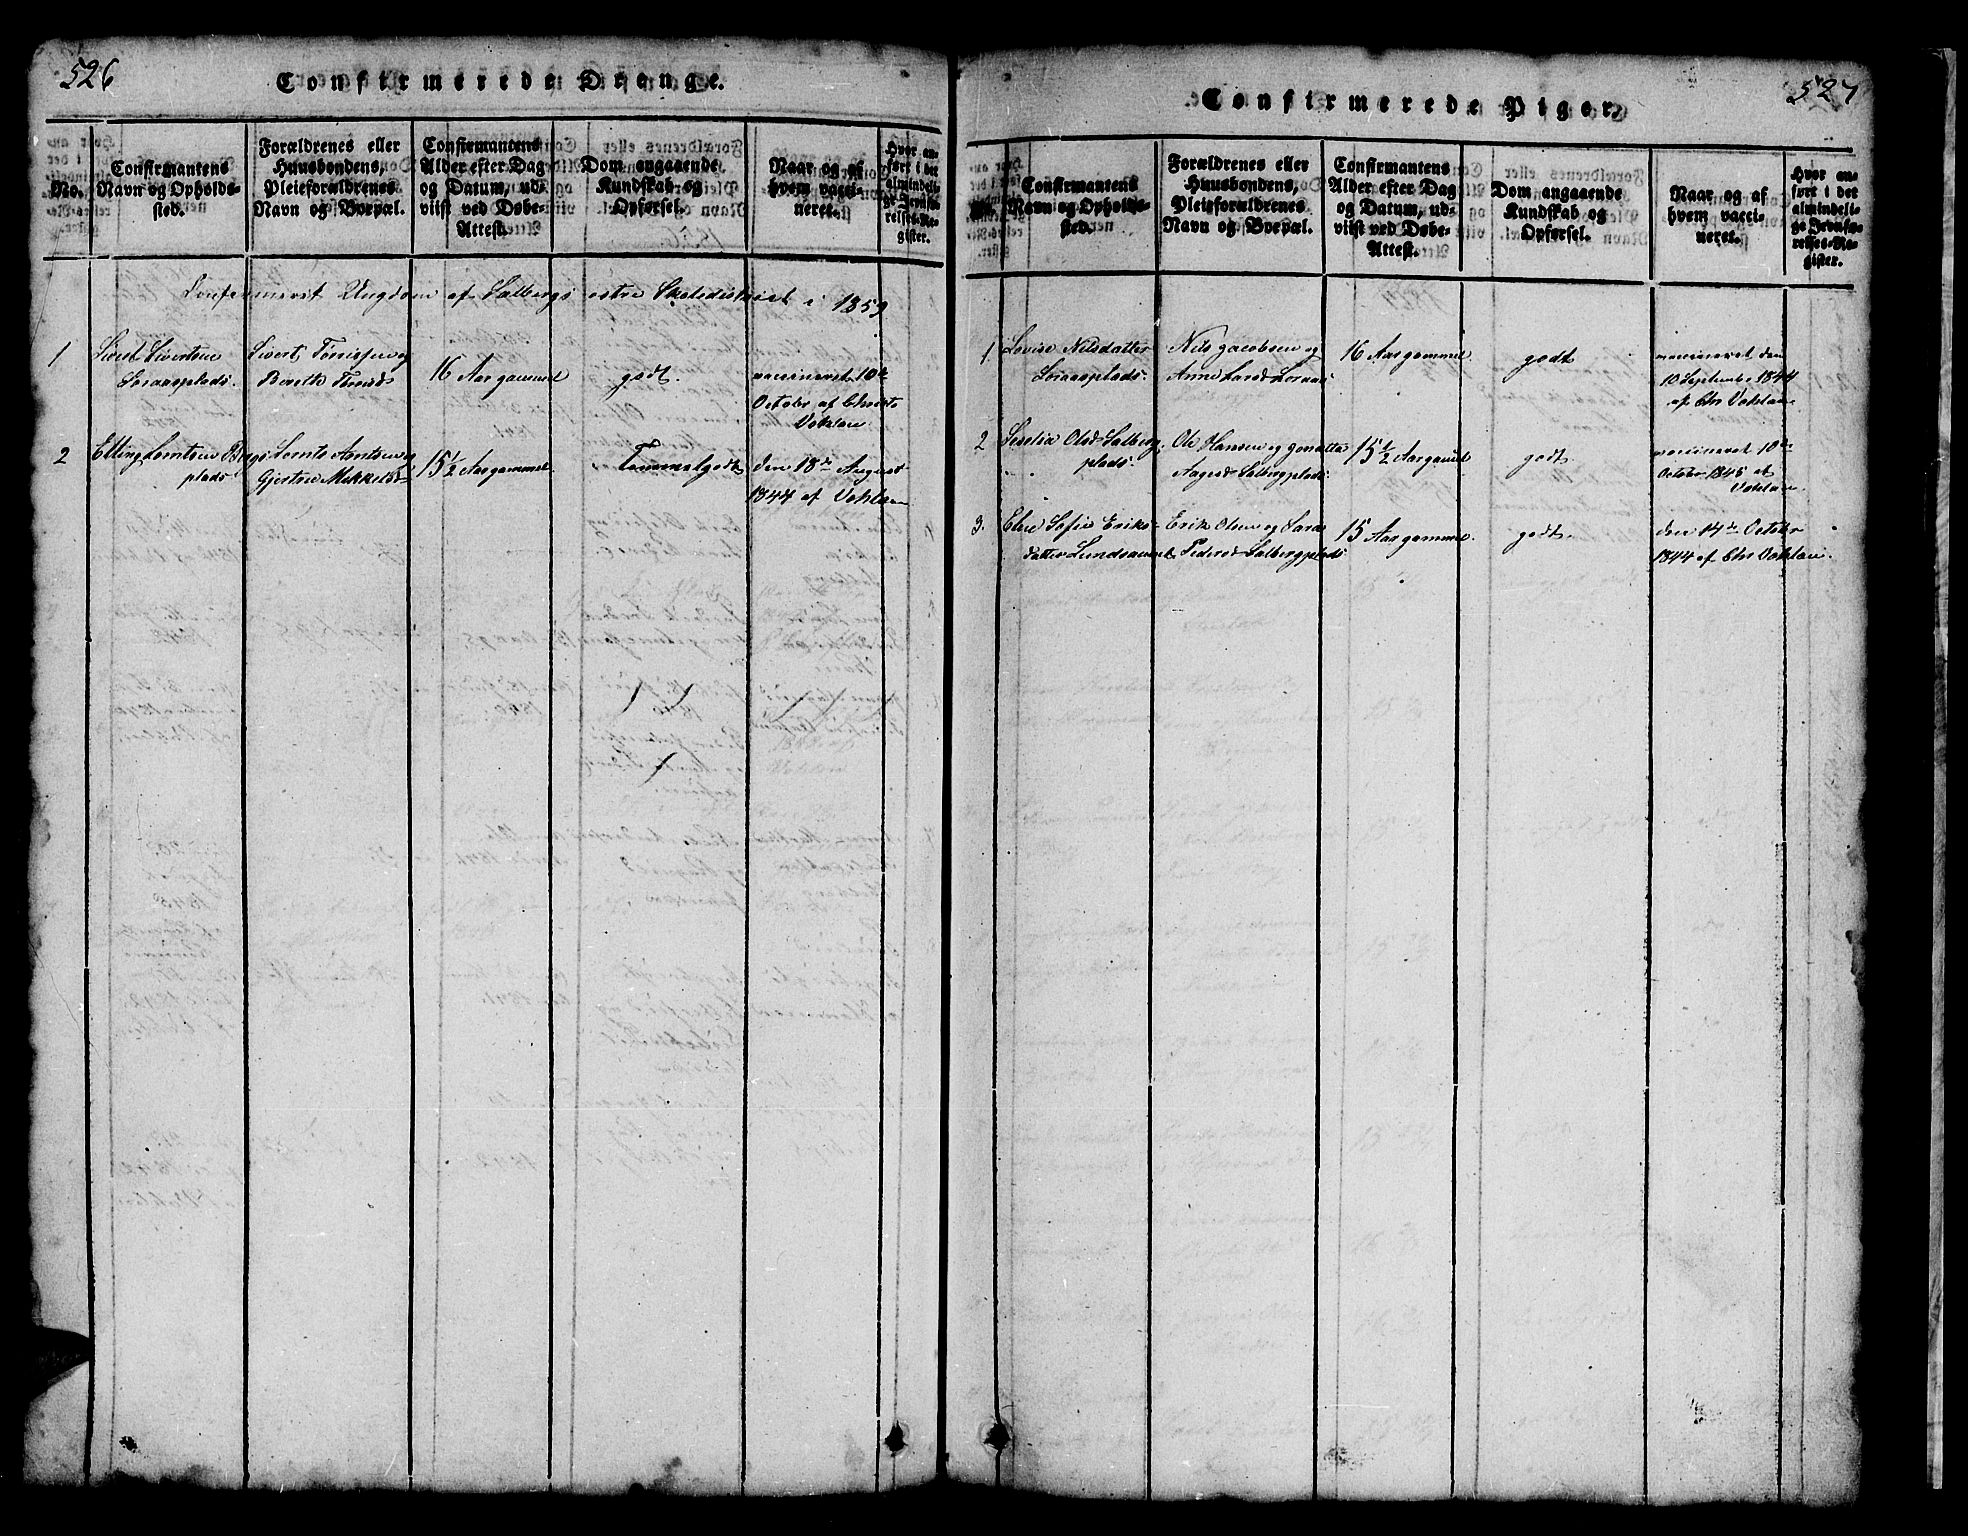 526
Confirmerede Drenge.
No.
Confirmantens
Navn og Opholds-
sted.
Forældrenes eller
Huusbondens,
Pleieforældrenes
Navn og Boepæl.
Confirmantens
Alder efter Dag
og Datum, ud-
viist ved Døbe-
Attest.
Dom angaaende
Kundskab og
Opførsel.
Naar og af
hvem vacci-
neret.
Hvor an-
ført i det
almindeli-
ge Jevnfø-
relses-Re-
gister.
Confirmeret Ungdom af Salbergs østre Skoledistrict i 1859
1
Sivert Sivertsen
Soraasplads.
Sivert Tønissen og
Berethe
16 Aar gammel
godt.
vaccineret 10de
October af Christe
Voktan.
2
Elling Tomtsen
plads
Tomte Arntsen og
Gjertrue Mikkelsd
15 1/2 Aar gammel
Temmelgodt
den 18de August
1844 af Voktan
527
Confirmerede Piger.
Confirmantens
Navn og Opholds-
sted.
Forældrenes eller
Huusbondens,
Pleieforældrenes
Navn og Boepæl.
Confirmantens
Alder efter Dag
og Datum, ud-
viist ved Døbe-
Attest.
Dom angaaende
Kundskab og
Opførsel.
Naar og af
hvem vacci-
neret.
Hvor an-
ført i det
almindeli-
ge Jevnfø-
relses-Re-
gister.
1.
Lovise Nilsdatter
Soraasplads.
Nils Jacobsen og
Anne Larsd Soraas
16 Aar gammel
godt
vaccineret den
10 September 1844
af Chr Voktan
2
Serelia Olsd Salberg
plads.
Ole Hansen og Jonetta
Aagesd Salbergplads.
15 1/2 Aar gammel
godt
vaccineret 10de
October 1845 af
Voktan.
3.
Eline Sofie Eriks-
datter Sundsaunet
Erik Olsen og Sara
Pedersd Salbergplads
15 Aar gammel.
godt.
den 14de October
1844 af Chr Voktan.